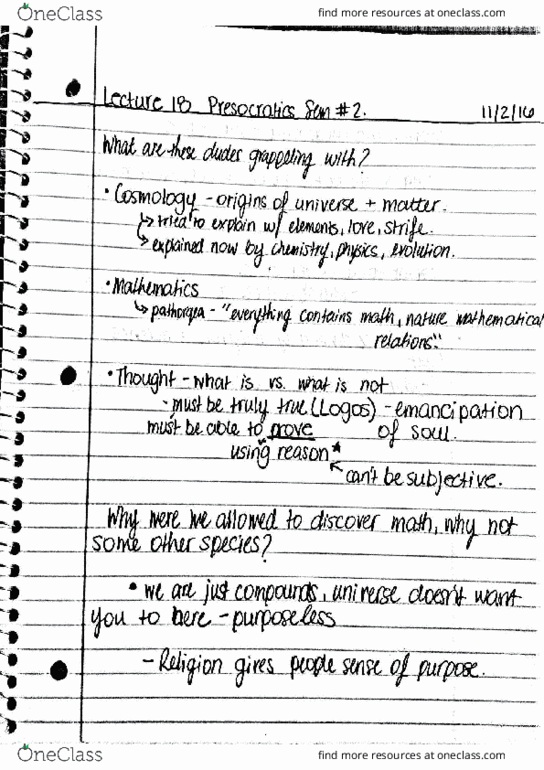 OneClass find more resources at oneclass.com
Lecture 18 Presocratics Sem #2. 11/2/16
What are these dudes grappoling with?
• Cosmology - origins of universe + matter.
↳ tried to explain w/ elements, love, strife.
↳ explained now by chemistry, physics, evolution.
• Mathematics
↳ pathorgea - "everything contains math, nature mathematical
relations"
• Thought - what is vs. what is not
- must be truly true (Logos) - emancipation
must be able to prove of soul.
"using reason*
↖ can't be subjective.
Why were we allowed to discover math, why not
some other species?
• we are just compounds, universe doesn't want
you to here - purposeless
- Religion gives people sense of purpose.
OneClass find more resources at oneclass.com